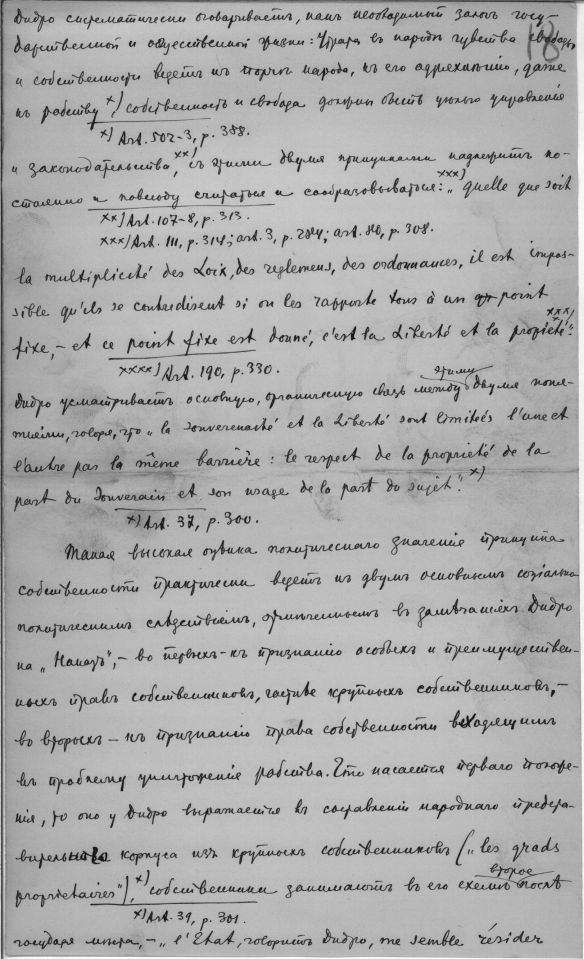 18
Дидро систематически оговариваетъ, какъ необходимый законъ госу-
дарственной и общественной жизни: Утрата въ народѣ чувства свободы
и собственности ведетъ къ порчѣ народа, къ его одряхлѣнію, даже
къ рабству x) собственность и свобода должны быть цѣлью управленія
x) Art. 502-3, p. 388.
и законодательства, xx) съ этими двумя принципами надлежитъ по-
стоянно и повсюду считаться и сообразовываться: xxx) „quelle que soit
xx) Art. 107-8, p. 313.
xxx) Art. 111, p. 314; art. 3, p. 284; art. 80, p. 308.
la multiplicité des Loix, des reglemens, des ordonnances, il est impos-
sible qu'ils se contredisent si on les rapporte tous à un point
fixe, – et ce point fixe est donné, c'est la Liberté et la propriété". xxxx)
xxxx) Art. 190, p. 330.
Дидро усматриваетъ основную, органическую связь между этими двумя поня-
тіями, говоря, что „la souveraineté et la Liberté sont limités l'une et
l'autre pas la même barrière: le respect de la propriété de la
part du Souverain et son usage de la part du sujét". x)
x) Art. 37, p. 300.
Такая высокая оцѣнка политическаго значенія принципа
собственности практически ведетъ къ двумъ основнымъ соціально
политическимъ слѣдствіямъ, отмѣченнымъ въ замѣчаніяхъ Дидро
на „Наказъ", – во первыхъ – къ признанію особыхъ и преимуществен-
ныхъ правъ собственниковъ, частнѣе крупныхъ собственниковъ, –
во вторыхъ – къ признанію права собственности входящимъ
въ проблему уничтоженія рабства. Что касается перваго положе-
нія, то оно у Дидро выражается въ составленіи народнаго предста-
вительнаго корпуса изъ крупныхъ собственниковъ („les grads
propriétaires"), x) собственники занимаютъ въ его схемѣ второе послѣ
x) Art. 39, p. 301.
государя мѣста, – „l'Etat, говоритъ Дидро, me semble résider